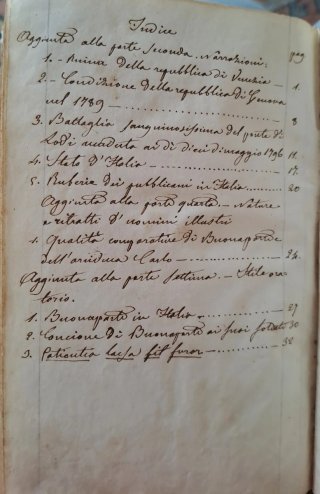 Indice
Aggiunta alla parte seconda. Narrazioni: pag
1. - Ruina della repubblica di Venezia - 1.
2. - Condizione della repubblica di Genova
nel 1789 - 8
3. Battaglia sanguinosissima del ponte di
Lodi avvenuta ai dì dieci di maggio 1796 11.
4. Stato d'Italia - 17.
5. Ruberie dei pubblicani in Italia 20
Aggiunta alla parte quarta. - Nature
e ritratti d'uomini illustri
1. Qualità comparative di Buonaparte e
dell'arciduca Carlo - 24.
Aggiunta alla parte settima. - Stile ora-
torio.
1. Buonaparte in Italia 27
2. Concione di Buonaparte ai suoi soldati 30
3. Patientia laesa fit furor 38